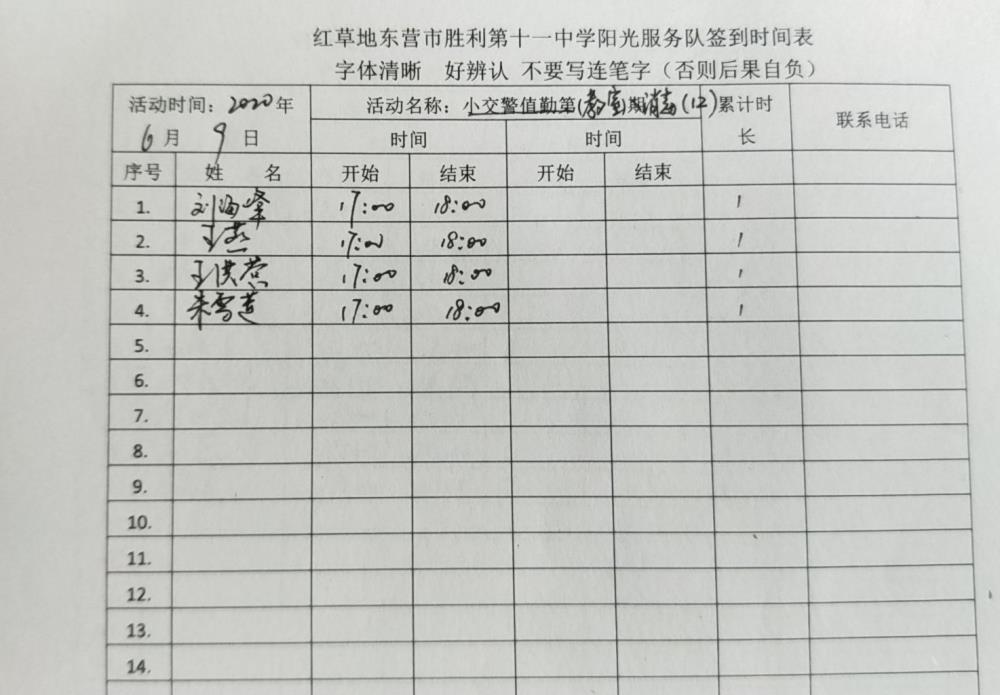 红草地东营市胜利第十一中学阳光服务队签到时间表
字体清晰 好辨认 不要写连笔字（否则后果自负）
活动时间：2020年 活动名称：小交警值勤第(教室)期消毒(12) 累计时长 联系电话
6月 9日 时间 时间
序号 姓 名 开始 结束 开始 结束
1. 刘海峰 17:00 18:00 1
2. 王燕 17:00 18:00 1
3. 王洪营 17:00 18:00 1
4. 朱雪莲 17:00 18:00 1
5.
6.
7.
8.
9.
10.
11.
12.
13.
14.